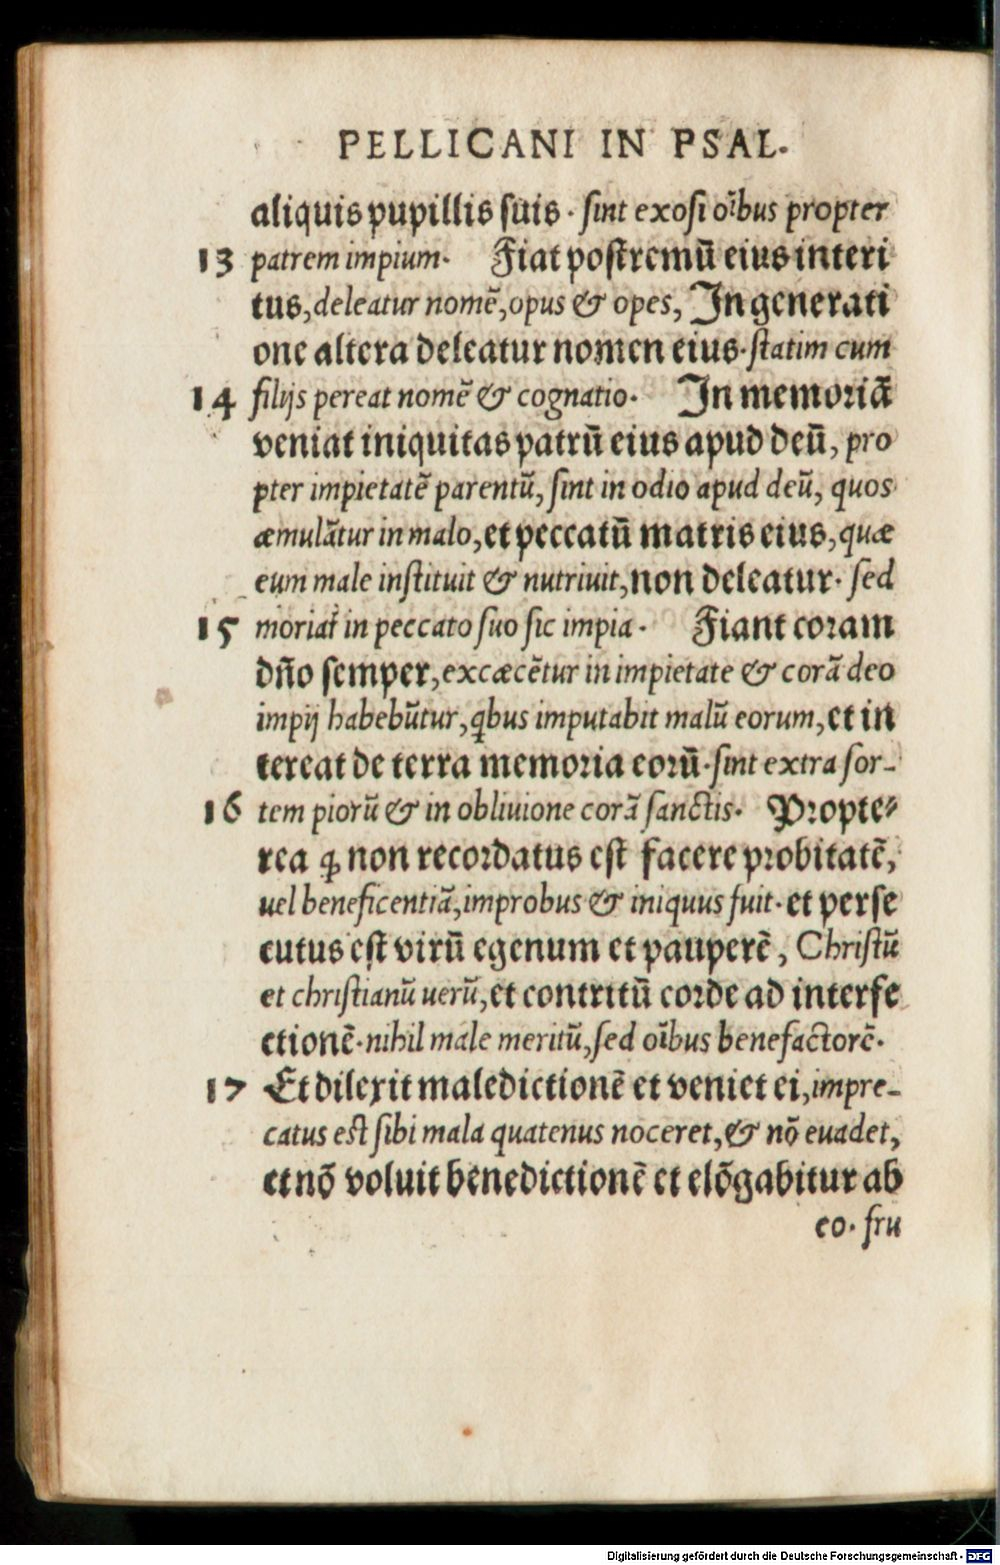 PELLICANI IN PSAL.
aliquis pupillis suis. sint exosi oĩbus propter
13 patrem impium. Fiat postremũ eius interi
tus, deleatur nomẽ, opus & opes, In generati
one altera deleatur nomen eius. statim cum
14 filijs pereat nomẽ & cognatio. In memoriã
veniat iniquitas patrũ eius apud deũ, pro
pter impietatẽ parentũ, sint in odio apud deũ, quos
æmulãtur in malo, et peccatũ matris eius, quæ
eum male instituit & nutriuit, non deleatur. sed
15 moriat᷑ in peccato suo sic impia. Fiant coram
dño semper, excæcẽtur in impietate & corã deo
impij habebũtur, q̃bus imputabit malũ eorum, et in
tereat de terra memoria eorũ. sint extra sor-
16 tem piorũ & in obliuione corã sanctis. Propte-
rea ꝙ non recordatus est facere probitatẽ,
uel beneficentiã, improbus & iniquus fuit. et perse
cutus est virũ egenum et pauperẽ, Christũ
et christianũ uerũ, et contritũ corde ad interfe
ctionẽ. nihil male meritũ, sed oĩbus benefactorẽ.
17 Et dilexit maledictionẽ et veniet ei, impre-
catus est sibi mala quatenus noceret, & nõ euadet,
et nõ voluit benedictionẽ et elõgabitur ab
eo. fru
Digitalisierung gefördert durch die Deutsche Forschungsgemeinschaft - DFG